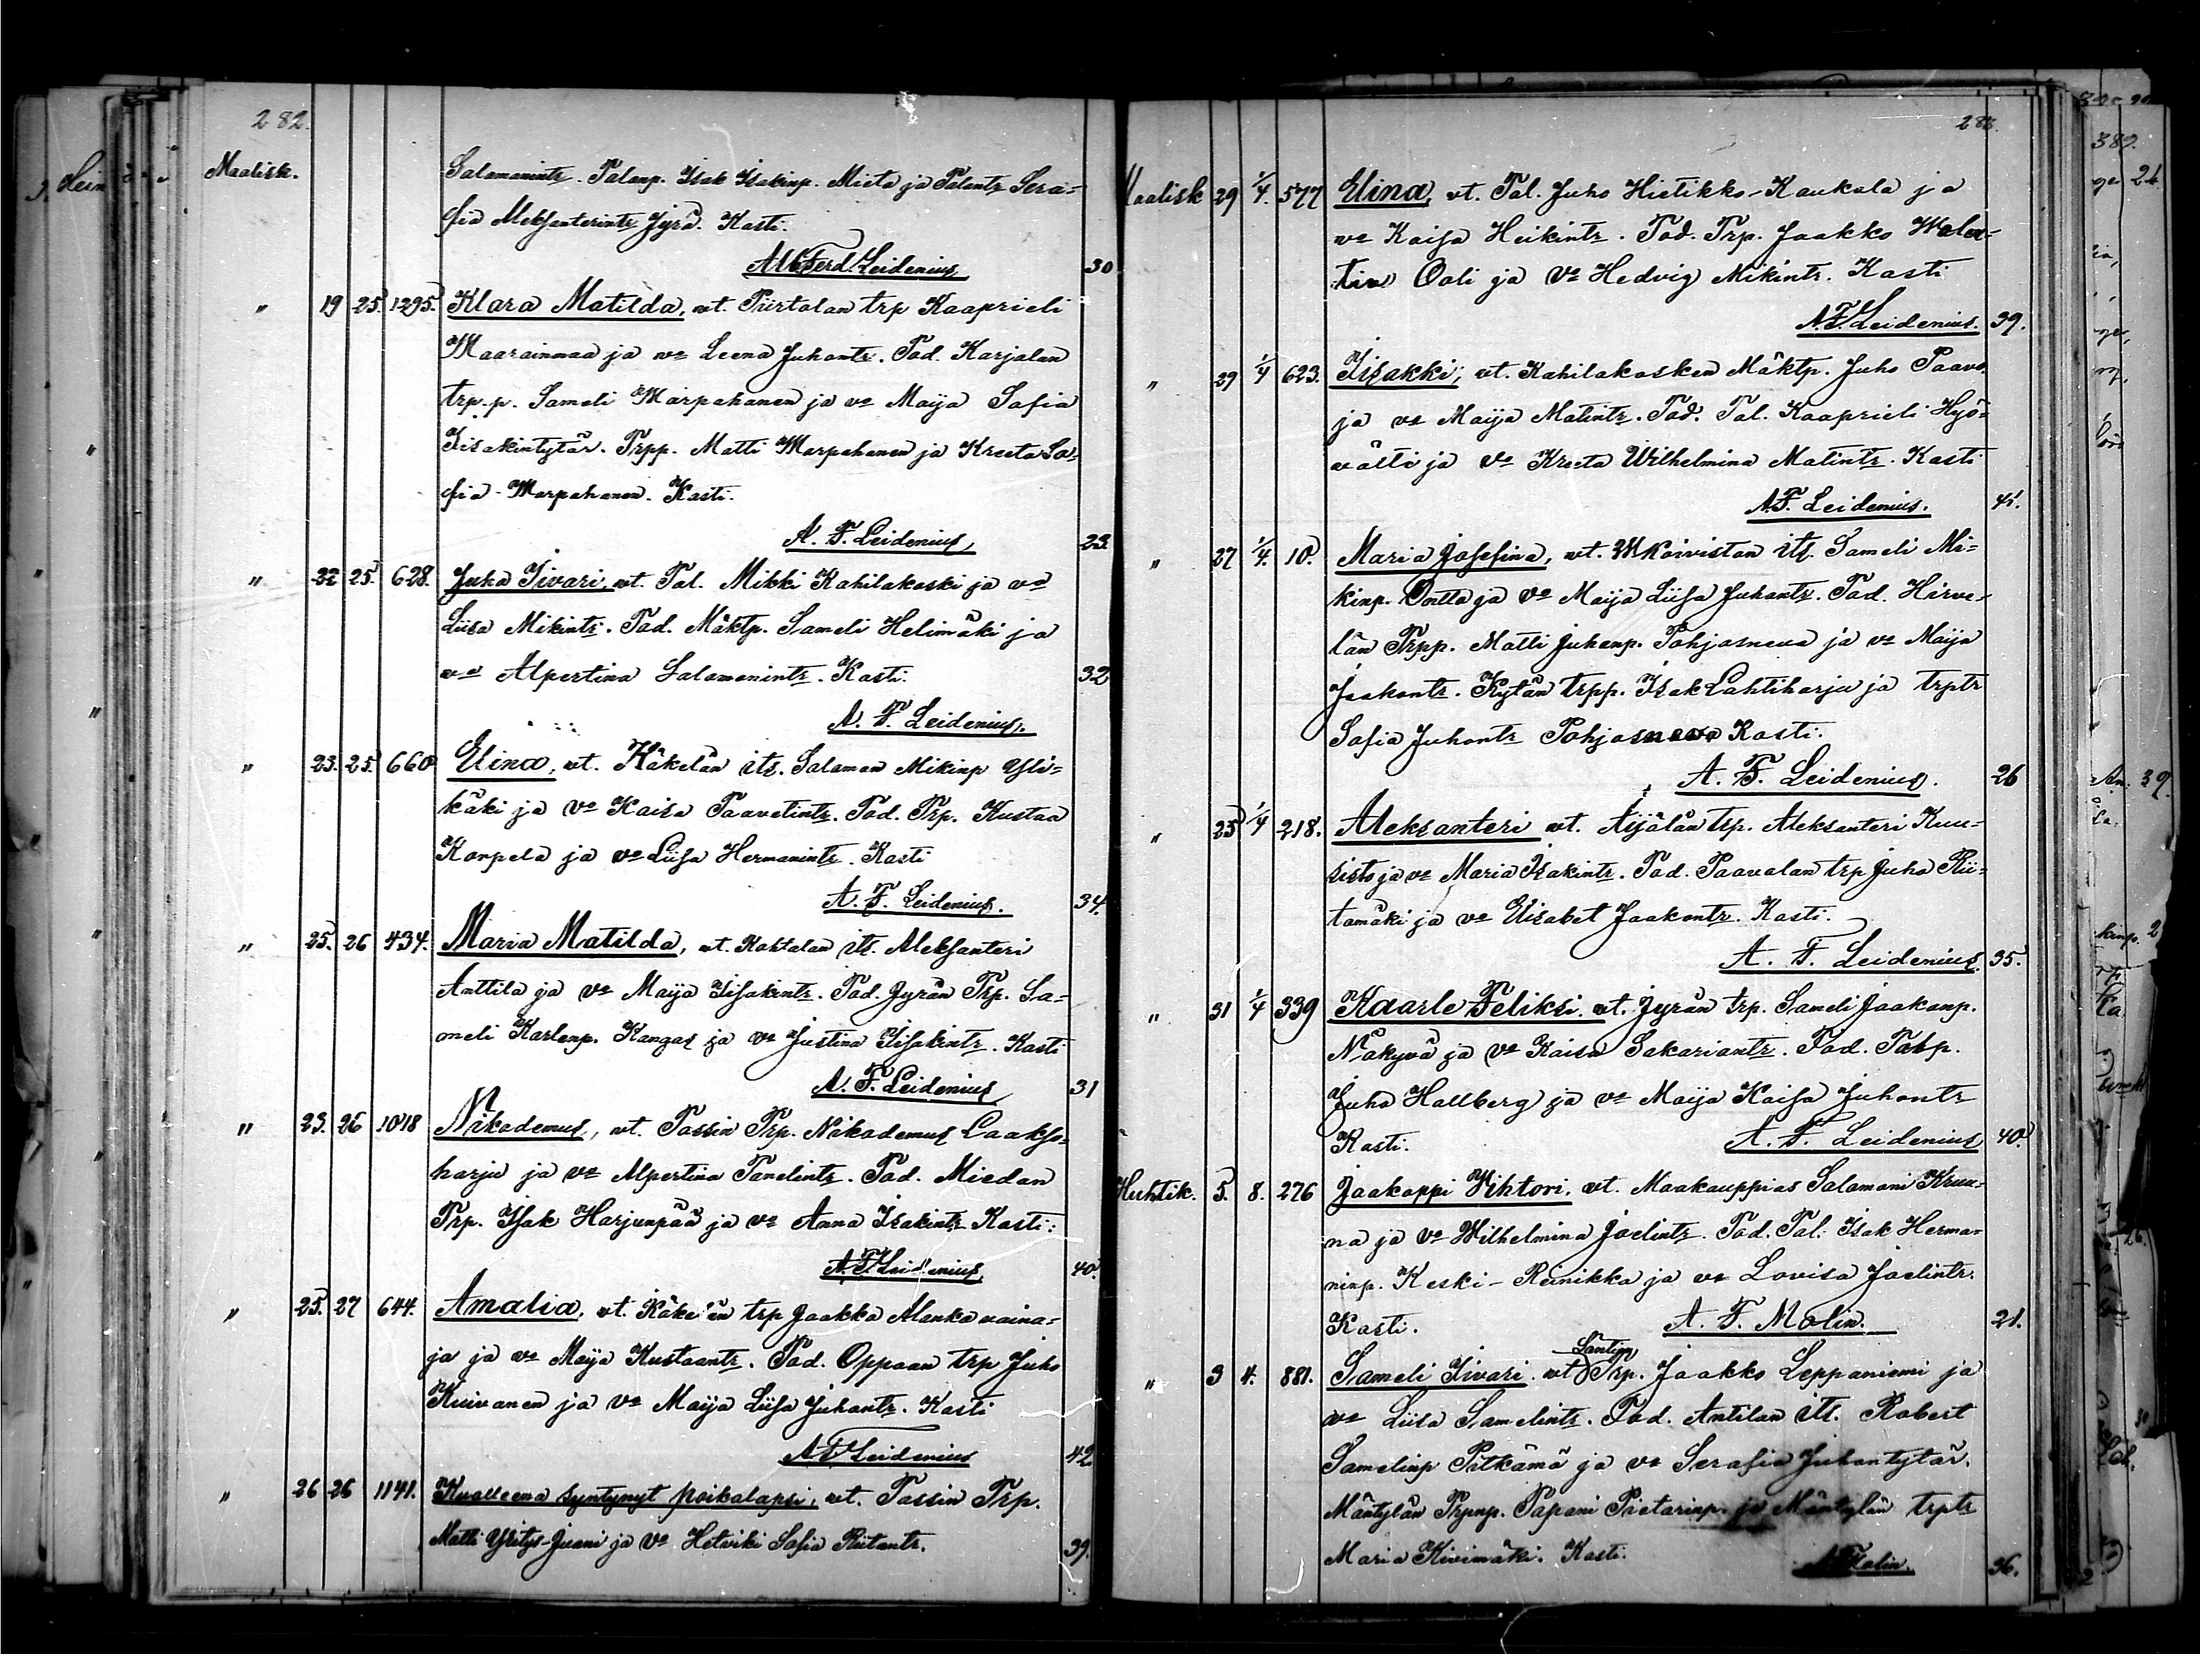 282.
Maalisk.
Salamanintr. Talanp. Isak Isakinp. Mieta ja Talantr Sera=
fia Aleksanterintr Jyrä. Kasti.
Alb Ferd. Leidenius 30
" 19 25. 1295. Klara Matilda, vt. Piirtolan trp Kaaprieli
Maarainmaa ja vo Leena Juhontr. Tod. Karjalan
trp.p. Sameli Marpahanen ja vo Maija Sofia
Iisakintytär. Trpp. Matti Marpahanen ja Kreeta So=
fia Marpahanen. Kasti.
A. F. Leidenius, 23.
" 22 25. 628. Juha Iivari, vt. Tal. Mikki Kahilakoski ja vo
Liisa Mikintr. Tod. Mäktp. Sameli Helimäki ja
vo Alpertina Salomonintr. Kasti. 32
A. F. Leidenius.
" 23. 25. 660 Elina, vt. Käkelän its. Salaman Mikinp Yli=
käki ja vo Kaisa Taavetintr. Tod. Trp. Kustaa
Korpela ja vo Liisa Hermanintr. Kasti
A. F. Leidenius. 34.
" 25. 26 434. Maria Matilda, vt. Kohtalan its. Aleksanteri
Anttila ja vo Maija Iisakintr. Tod. Jyrän Trp. Sa=
meli Karlenp. Kangas ja vo Justina Iisakintr. Kasti
A. F. Leidenius 31
" 23. 26 1018 Nikodemus, vt. Tassin Trp. Nikodemus Laakso=
harju ja vo Alpertina Tanelintr. Tod. Miedan
Trp. Isak Harjunpää ja vo Anna Isakintr Kasti:
A. F. Leidenius 40.
" 25. 27 644. Amalia, vt. Käke'än trp Jaakka Alanko vaina=
ja ja vo Maija Kustaantr. Tod. Oppaan trp Juho
Kuivanen ja vo Maija Liisa Juhontr. Kasti
A F Leidenius 42
" 26 26 1141. Kuolleena syntynyt poikalapsi, vt. Tassin Trp.
Matti Yritys-Juoni ja vo Hetviki Sofia Riitantr. 39.
283.
Maalisk 29 1/4. 577 Elina, vt. Tal. Juho Hietikko-Kaukola ja
vo Kaisa Heikintr. Tod. Trp. Jaakko Walen=
tin Oali ja vo Hedvig Mikintr. Kasti
A. F. Leidenius. 39.
" 29 1/4 623. Iisakki, vt. Kahilakosken Mäktp. Juho Paavo
ja vo Maija Matintr. Tod. Tal. Kaaprieli Hyö=
välti ja vo Kreeta Wilhelmina Matintr. Kasti
A. F. Leidenius. 41.
" 27 1/4. 10. Maria Josefina, vt. W Koivistan its. Sameli Mi=
kinp. Ontto ja vo Maija Liisa Juhontr. Tod. Hirve=
län Trpp. Matti Juhanp. Pohjasneva ja vo Maija
Jaakontr. Kytän trpp. Isak Lahtiharju ja trptr
Sofia Juhontr Pohjasneva Kasti.
A. F. Leidenius. 26
" 25 1/4 218. Aleksanteri vt. Äijälän trp. Aleksanteri Kuu=
sisto ja vo Maria Isakintr. Tod. Paavolan trp Juho Rii=
tamäki ja vo Elisabet Jaakontr. Kasti.
A. F. Leidenius 35.
" 31 1/4 339 Kaarle Feliksi, vt. Jyrän trp. Sameli Jaakonp.
Näkyvä ja vo Kaisa Sakariantr. Tod. Talp.
Juho Hallberg ja vo Maija Kaisa Juhontr
Kasti. A. F. Leidenius 40.
Huhtik. 5. 8. 276 Jaakoppi Vihtori, vt. Maakauppias Salamani Kruu=
na ja vo Wilhelmina Joelintr. Tod. Tal. Isak Herma=
ninp. Keski-Reinikka ja vo Lovisa Joelintr.
Kasti. A. F. Molin. 21.
Santin
" 3 4. 881. Sameli Iivari. vt Trp. Jaakko Leppaniemi ja
vo Liisa Samelintr. Tod. Antilan its. Robert
Samelinp Pitkämä ja vo Serafia Juhontytär.
Mäntylän Trpnp. Tapani Pietarinp. ja Mäntylän trptr
Maria Kivimäki. Kasti. A F Molin. 36.